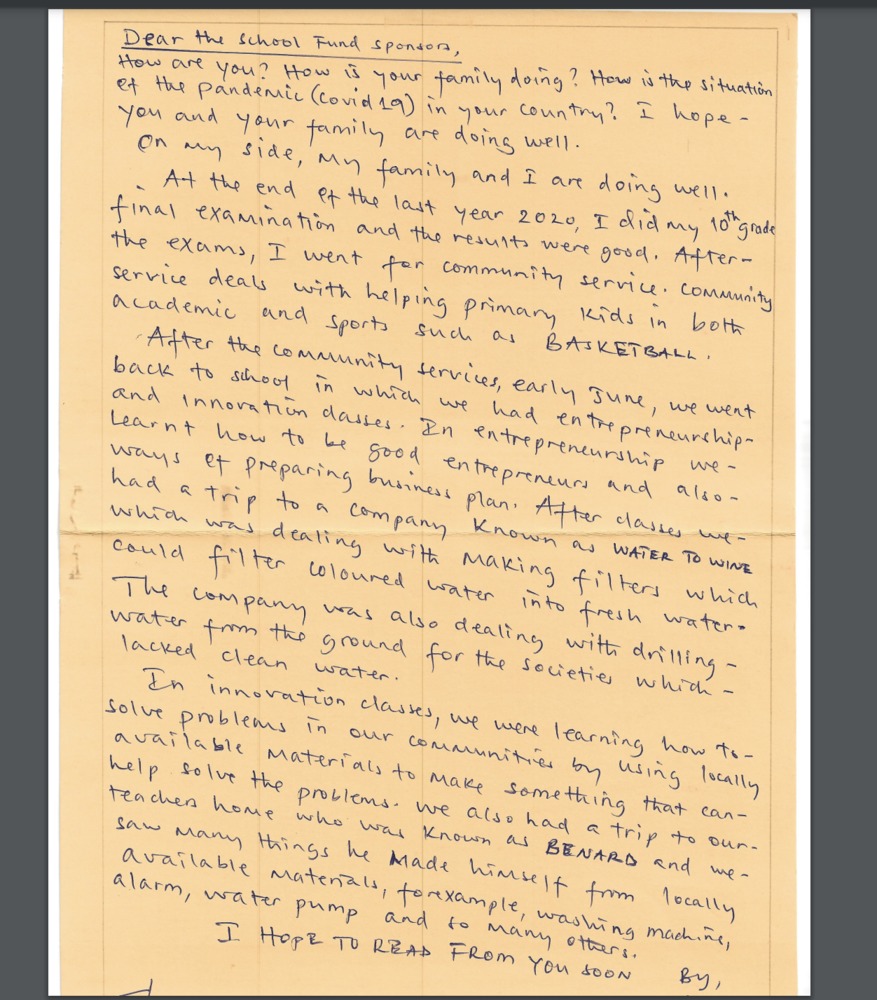 Dear the school Fund sponsors,
How are you? How is your family doing? How is the situation
of the pandemic (covid 19) in your country? I hope-
you and your family are doing well.
On my side, my family and I are doing well.
At the end of the last year 2020, I did my 10th grade
final examination and the results were good. After-
the exams, I went for community service. Community
service deals with helping primary kids in both
academic and sports such as BASKETBALL.
After the community services, early June, we went
back to school in which we had entrepreneurship-
and innovation classes. In entrepreneurship we-
learnt how to be good entrepreneurs and also-
ways of preparing business plan. After classes we-
had a trip to a company known as WATER TO WINE
which was dealing with making filters which
could filter coloured water into fresh water.
The company was also dealing with drilling-
water from the ground for the societies which-
lacked clean water.
In innovation classes, we were learning how to-
solve problems in our communities by using locally
available materials to make something that can-
help solve the problems. We also had a trip to our-
teachers home who was known as BENARD and we-
saw many things he made himself from locally
available materials, forexample, washing machine,
alarm, water pump and so many others.
I HOPE TO READ FROM YOU SOON By,